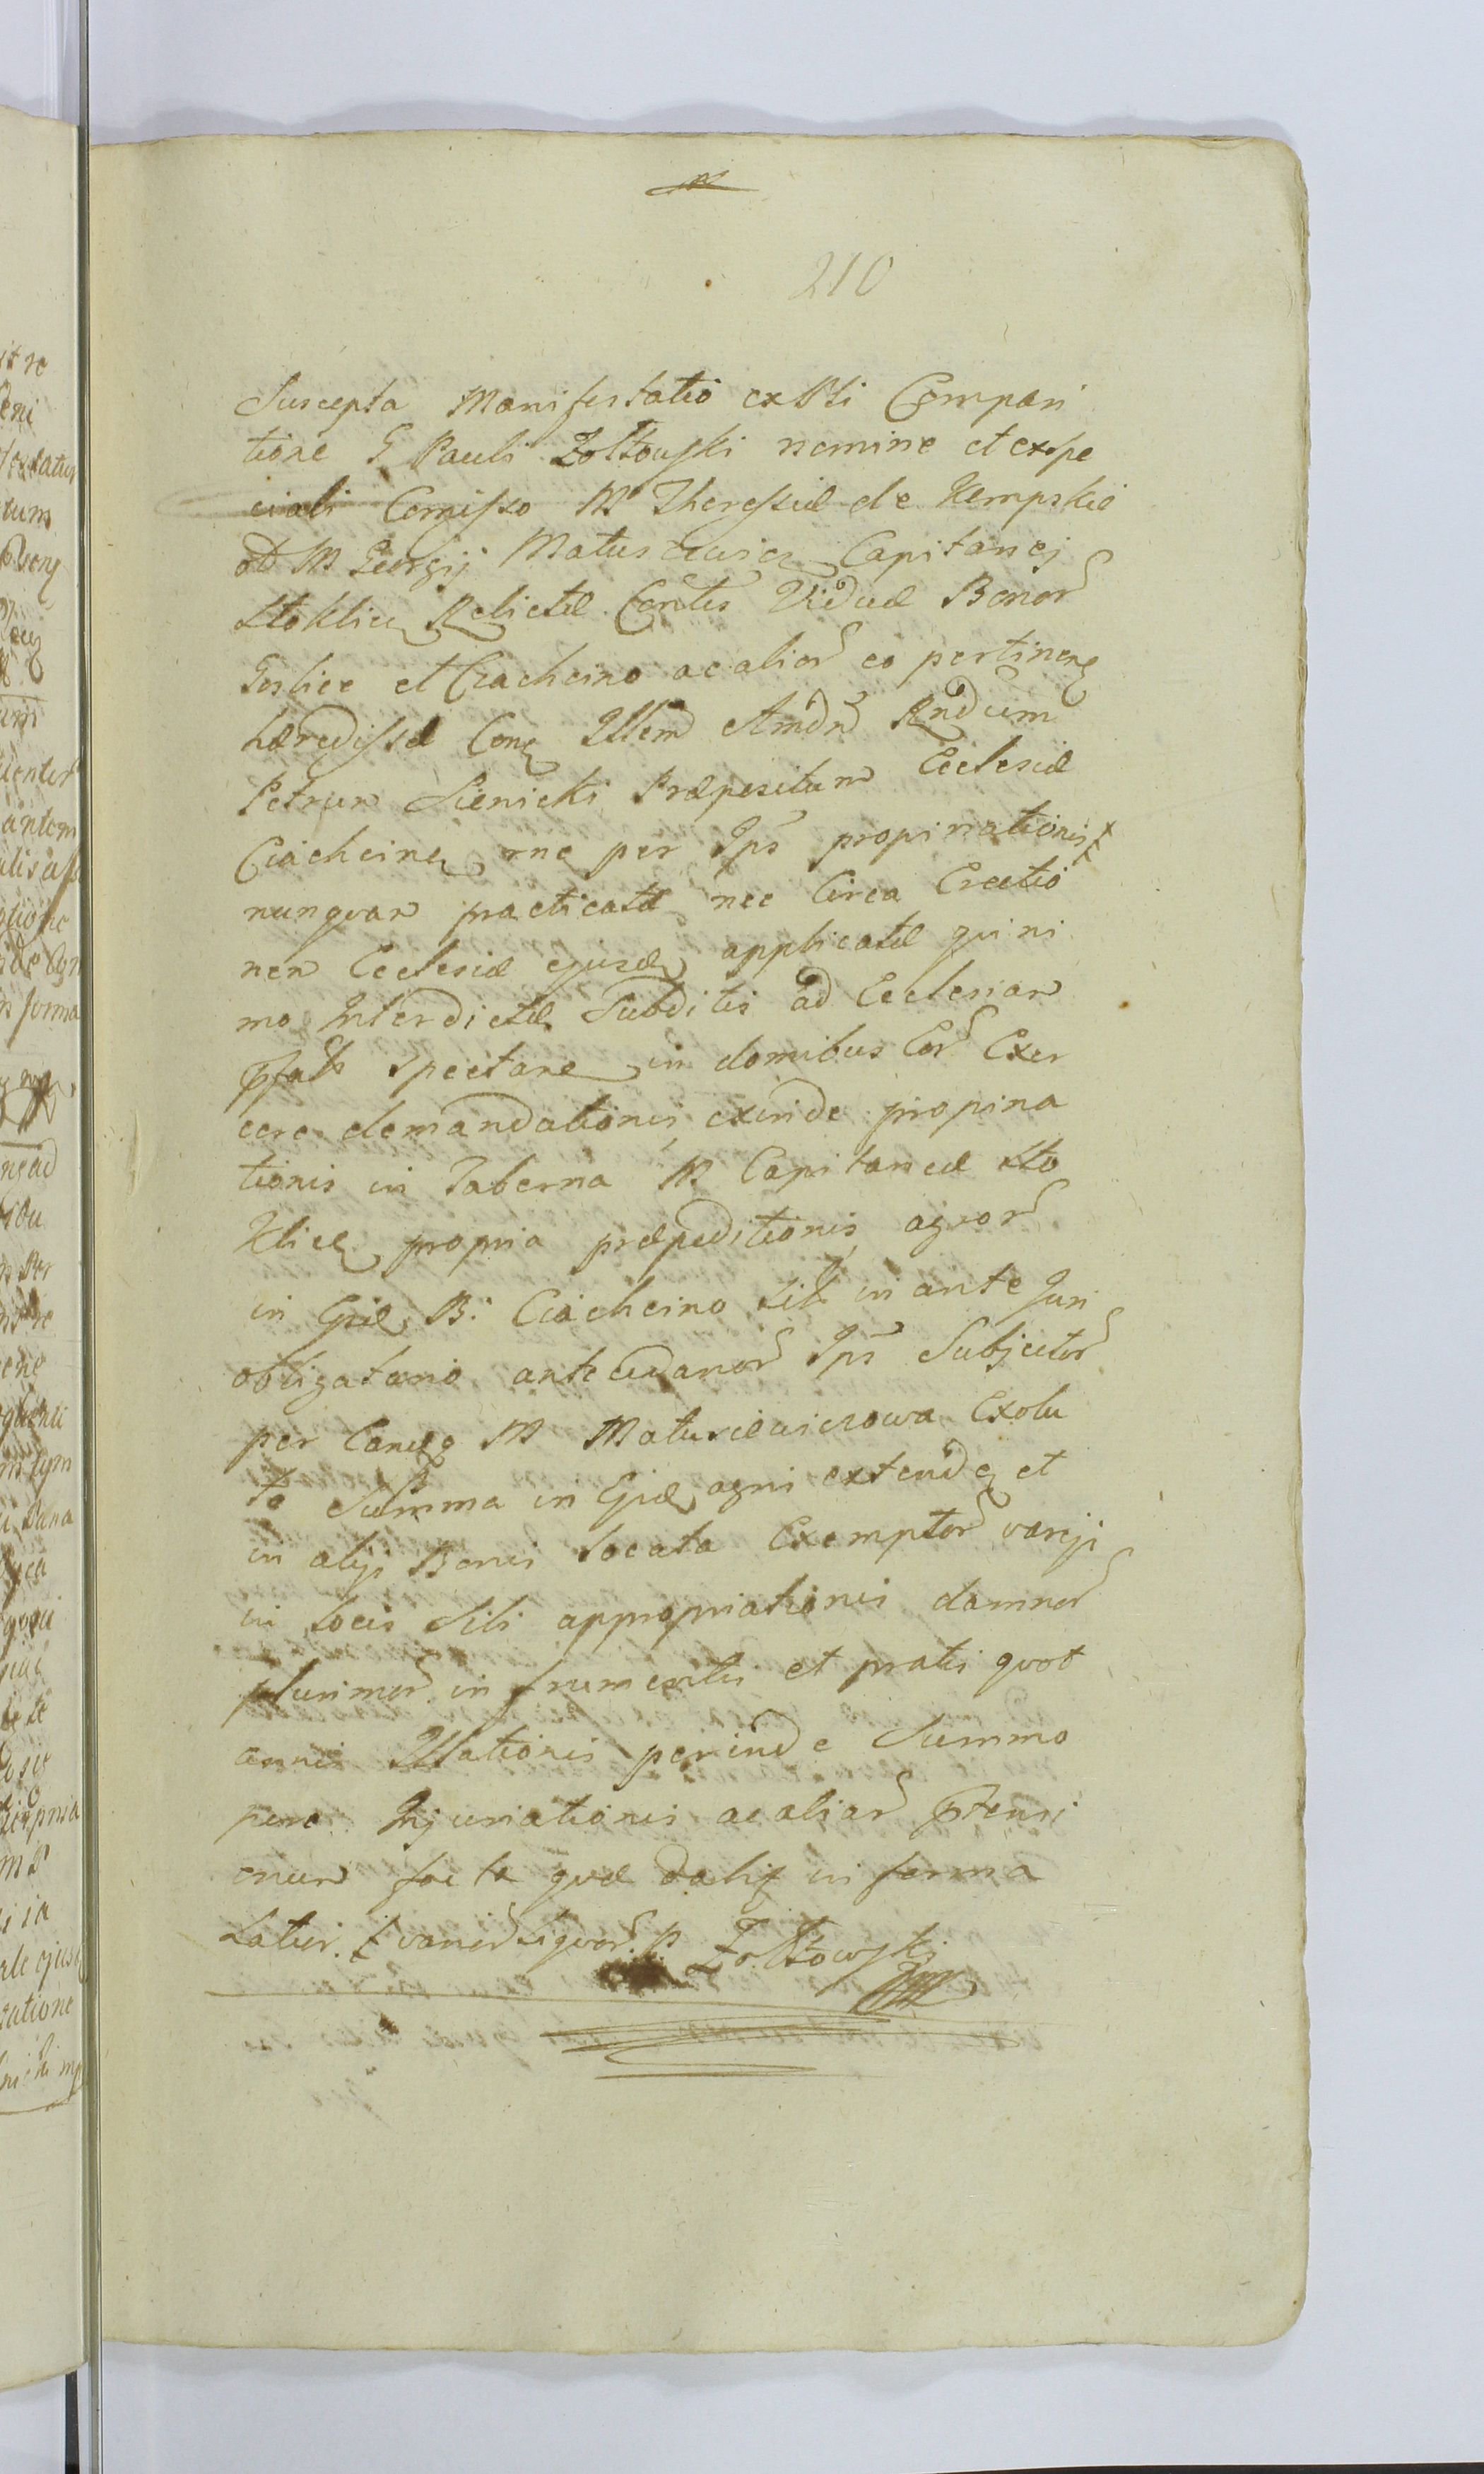 210
Suscepta Manifestatio ex Pti Compari
tione G Pauli Zołtowski nomine et ex spe
ciali Comisso M Theressiæ de Kempskie
M Georgij Matuscewicz Capitanej
Stoklic Relictæ Contes Viduæ Bonor
Goslice et Ciachcino ac alior eo pertinen
hæredissæ Con Illem Amdn Rndum
Petrum Sienicki Præpositum Ecclesiæ
Ciachcinen rne per Ips propinationis
nunquam practicatæ nec Circa Erectio
nem Ecclesiæ ejusd applicatæ qui ni
mo Interdictæ Subditis ad Ecclesiam
spectare in domibus Eor Exer
cere demandationis exinde propina
tionis in Taberna M Capitaneæ Sto
klice propria præpeditionis agror
in Græ B. Ciachcino Sit in ante Juri
obligatorio antecedanor Ips Subjector
per Eand M Matuscewiczowa Exolu
ta Summa in Græ agri extend et
in alijs Bonis Locata Exemptor varijs
in Locis Sibi appropriationis damnor
plurimor in frumentis et pratis quot
annis Illationis perinde Summo
pere Injuriationis ac aliar ptensi
onum facta quæ in forma
Latior. P Zołtowski